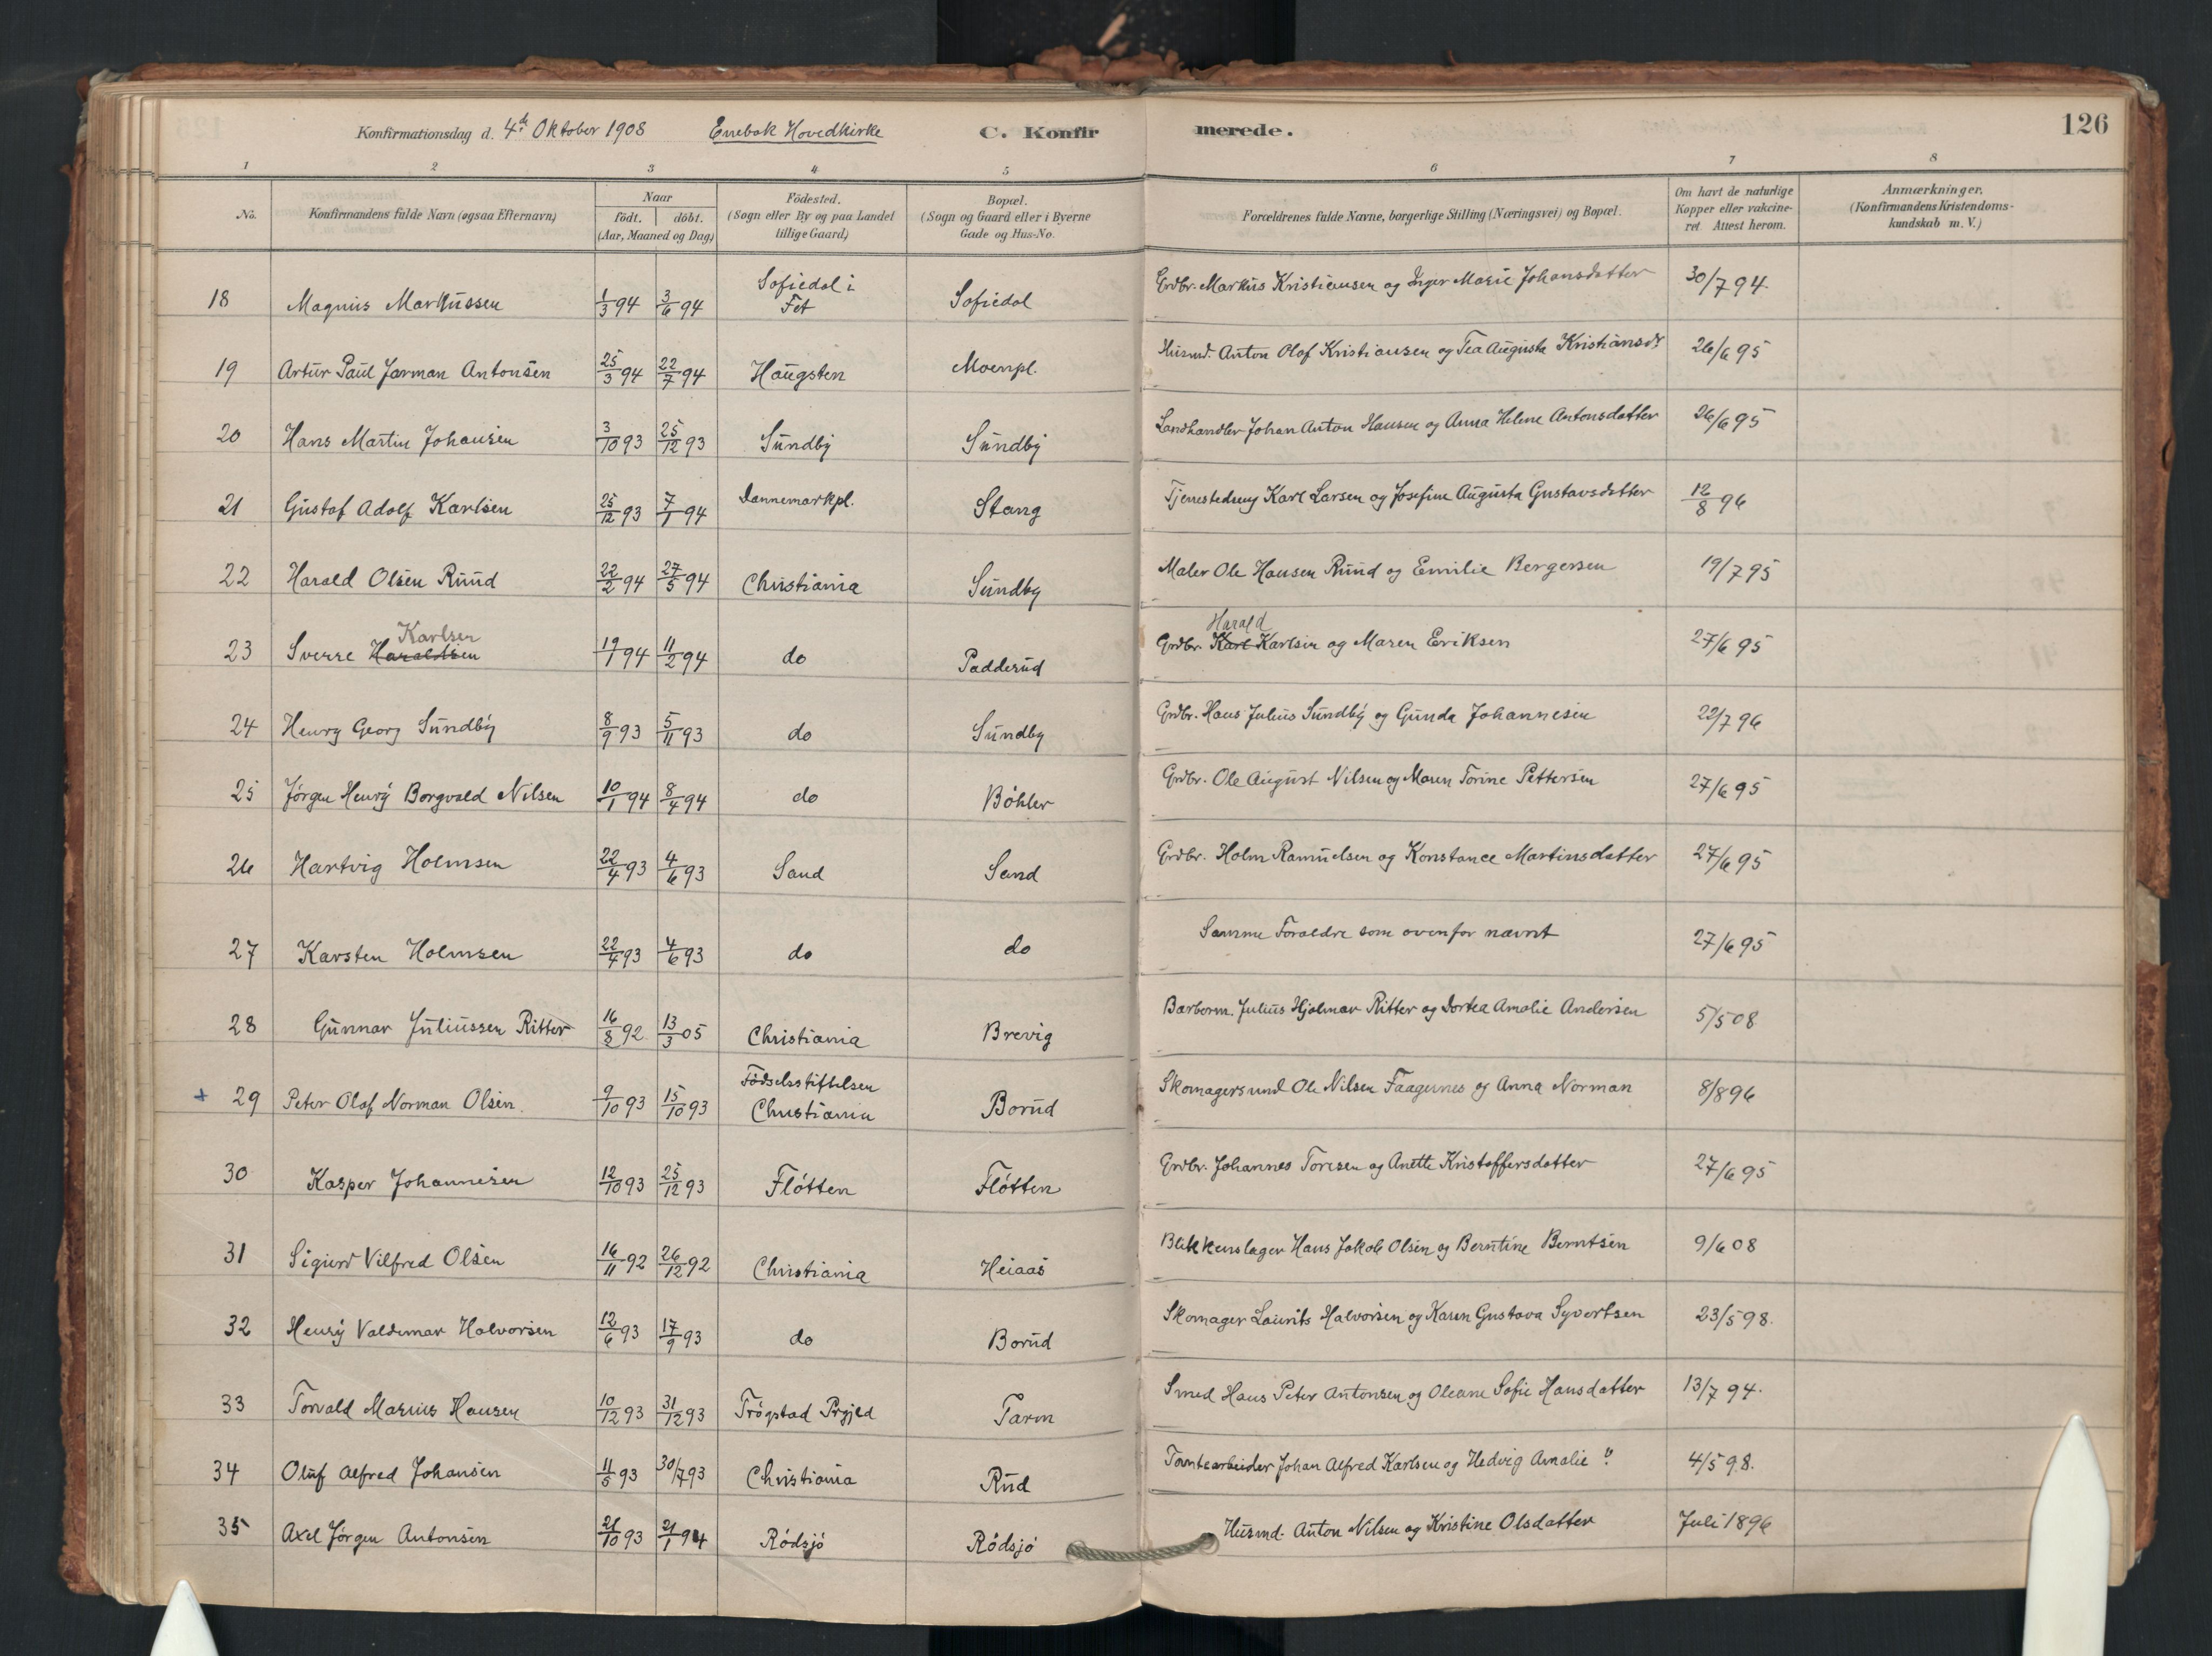 Konfirmationsdag d. 4de Oktober 1908 Enebak Hovedkirke C. Konfirmerede. 126
1 2 3 4 5 6 7 8
No. Konfirmandens fulde Navn (ogsaa Efternavn) Naar födt. döbt. (Aar, Maaned og Dag) Födested. (Sogn eller By og paa Landet tillige Gaard) Bopæl. (Sogn og Gaard eller i Byerne Gade og Hus-No. Forældrenes fulde Navne, borgerlige Stilling (Næringsvei) og Bopæl. Om havt de naturlige Kopper eller vakcineret. Attest herom. Anmærkninger. (Konfirmandens Kristendomskundskab m. V.)
18 Magnus Markussen 1/3 94 3/6 94 Sofiedal i Fet Sofiedal Grdbr. Markus Kristiansen og Inger Marie Johansdatter 30/7 94.
19 Artur Paul Jarman Antonsen 25/3 94 22/7 94 Haugsten Moenpl. Husmd. Anton Olaf Kristiansen og Tea Augusta Kristiansdr 26/6 95
20 Hans Martin Johansen 3/10 93 25/12 93 Sundby Sundby Landhandler Johan Anton Hansen og Anna Helene Antonsdatter 26/6 95
21 Gustaf Adolf Karlsen 25/12 93 7/1 94 Dannemarkpl. Stang Karl Larsen og Josefine Augusta Gustavsdatter 12/8 96
22 Harald Olsen Ruud 22/2 94 27/5 94 Christiania Sundby Maler Ole Hansen Ruud og Emilie Bergersen 19/7 95
23 Sverre Haraldsen Karlsen 19/1 94 11/2 94 do Padderud Grdbr. Karl Harald Karlsen og Maren Eriksen 27/6 95
24 Henry Georg Sundby 8/9 93 5/11 93 do Sundby Grdbr. Hans Julius Sundby og Gunda Johannesen 22/7 96
25 Jørgen Henry Borgvald Nilsen 10/1 94 8/4 94 do Böhler Grdbr. Ole August Nilsen og Maren Torine Pettersen 27/6 95
26 Hartvig Holmsen 22/4 93 4/6 93 Sand Sand Grdbr. Holm Ramuelsen og Konstance Martinsdatter 27/6 95
27 Karsten Holmsen 22/4 93 4/6 93 do do Samme Foraldre som ovenfor nævnt 27/6 95
28 Gunnar Juliussen Ritter 16/8 92 13/3 05 Christiania Brevig Barberm. Julius Hjalmar Ritter og Dortea Amalie Andersen 5/5 08
+ 29 Peter Olaf Norman Olsen. 9/10 93 15/10 93 Födselsstiftelsen Christiania Borud Skomagersvend Ole Nilsen Faagernes og Anna Norman 8/8 96
30 Kasper Johannesen 12/10 93 25/12 93 Flötten Flötten Grdbr. Johannes Toresen og Anette Kristoffersdatter 27/6 95
31 Sigurd Vilfred Olsen 16/11 92 26/12 92 Christiania Heiaas Blikkenslager Hans Jakob Olsen og Berntine Berntsen 9/6 08
32 Henry Valdemar Halvorsen 12/6 93 17/9 93 do Borud Skomager Laurits Halvorsen og Karen Gustava Syvertsen 23/5 98.
33 Torvald Marius Hansen 10/12 93 31/12 93 Trögstad Prgjeld Tarm Smed Hans Peter Antonsen og Oleane Sofie Hansdatter 13/7 94.
34 Oluf Alfred Johansen 11/5 93 30/7 93 Christiania Rud Tomtearbeider Johan Alfred Karlsen og Hedvig Amalie " 4/5 98.
35 Axel Jørgen Antonsen 21/10 93 21/1 94 Rödsjö Rödsjö Husmd. Anton Nilsen og Kristine Olsdatter Juli 1896